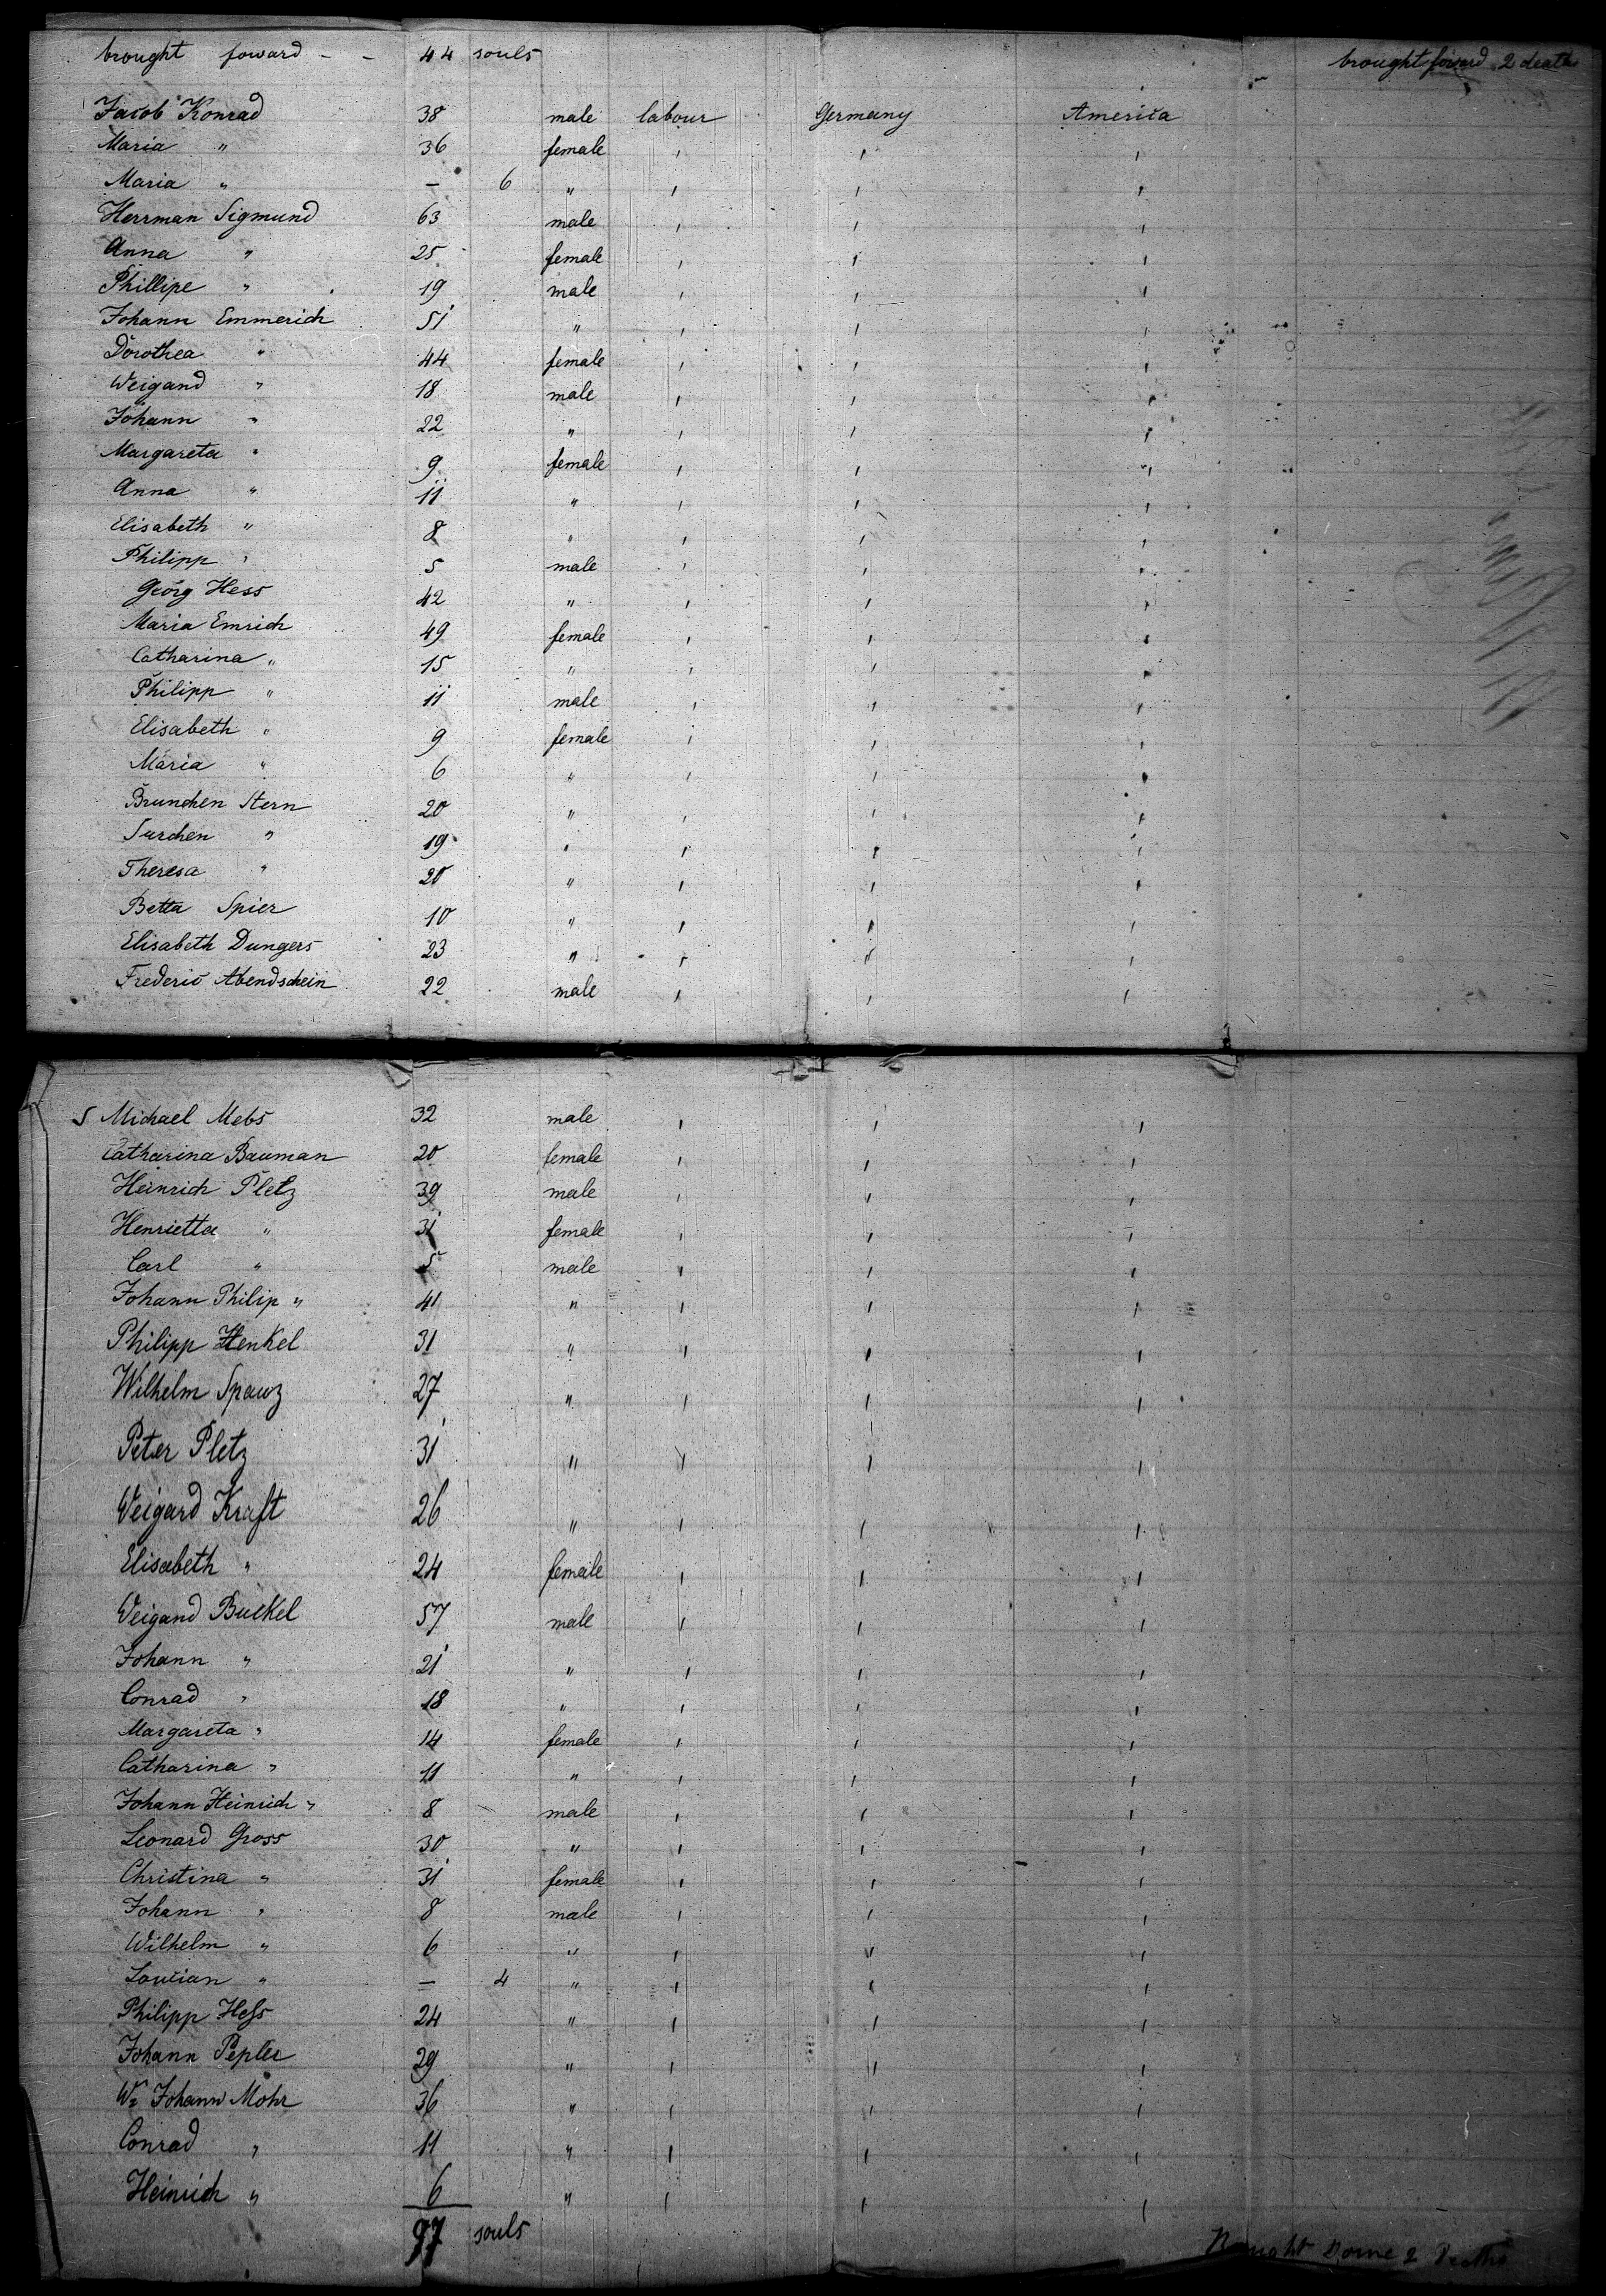 brought foward - - 44 souls brought forward 2 death
Jacob Konrad 38 male labour Germany America
Maria " 36 female ' ' '
Maria " — 6 " ' ' '
Herrman Sigmund 63 male ' ' '
Anna " 25 female ' ' '
Phillipe " 19 male ' ' '
Johann Emmerich 51 " ' ' '
Dorothea " 44 female ' ' '
Weigand " 18 male ' ' '
Johann " 22 " ' ' '
Margareta " 9 female ' ' '
Anna " 11 " ' ' '
Elisabeth " 8 " ' ' '
Philipp " 5 male ' ' '
Georg Hess 42 " ' ' '
Maria Emrich 49 female ' ' '
Catharina " 15 " ' ' '
Philipp " 11 male ' ' '
Elisabeth " 9 female ' ' '
Maria " 6 " ' ' '
Brunchen Stern 20 " ' ' '
Surchen " 19 " ' ' '
Theresa " 20 " ' ' '
Betta Spier 10 " ' ' '
Elisabeth Dungers 23 " ' ' '
Frederic Abendschein 22 male ' ' '
Michael Mebs 32 male ' ' '
Catharina Bauman 20 female ' ' '
Heinrich Pletz 39 male ' ' '
Henrietta " 31 female ' ' '
Carl " 5 male ' ' '
Johann Philip " 41 " ' ' '
Philipp Henkel 31 " ' ' '
Wilhelm Spawz 27 " ' ' '
Peter Pletz 31 " ' ' '
Weigard Kraft 26 " ' ' '
Elisabeth " 24 female ' ' '
Weigand Buckel 57 male ' ' '
Johann " 21 " ' ' '
Conrad " 18 " ' ' '
Margareta " 14 female ' ' '
Catharina " 11 " ' ' '
Johann Heinrich " 8 male ' ' '
Leonard Gross 30 " ' ' '
Christina " 31 female ' ' '
Johann " 8 male ' ' '
Wilhelm " 6 " ' ' '
Loucian " — 4 " ' ' '
Philipp Hess 24 " ' ' '
Johann Pepler 29 " ' ' '
Johann Mohr 36 " ' ' '
Conrad " 11 " ' ' '
Heinrich " 6 " ' ' '
97 souls 2